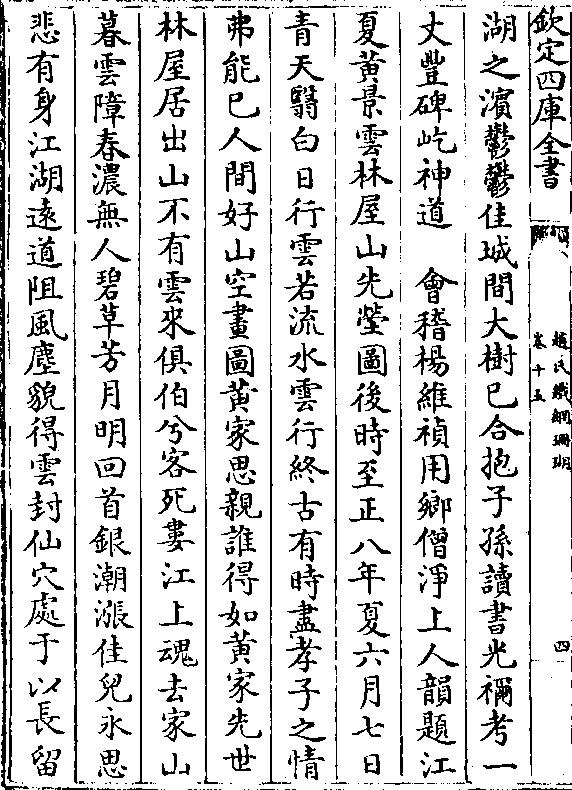 欽定四庫全書
趙氏鐵網珊瑚
卷十五
四
湖之濱鬱鬱佳城間大樹已合抱子孫讀書光禰考一
丈豐碑屹神道　會稽楊維禎用鄉僧淨上人韻題江
夏黃景雲林屋山先塋圖後時至正八年夏六月七日
青天翳白日行雲若流水雲行終古有時盡孝子之情
弗能已人間好山空畫圖黃家思親誰得如黃家先世
林屋居出山不有雲來俱伯兮客死婁江上魂去家山
暮雲障春濃無人碧草芳月明回首銀潮漲佳兒永思
悲有身江湖遠道阻風塵貌得雲封仙穴處于以長留